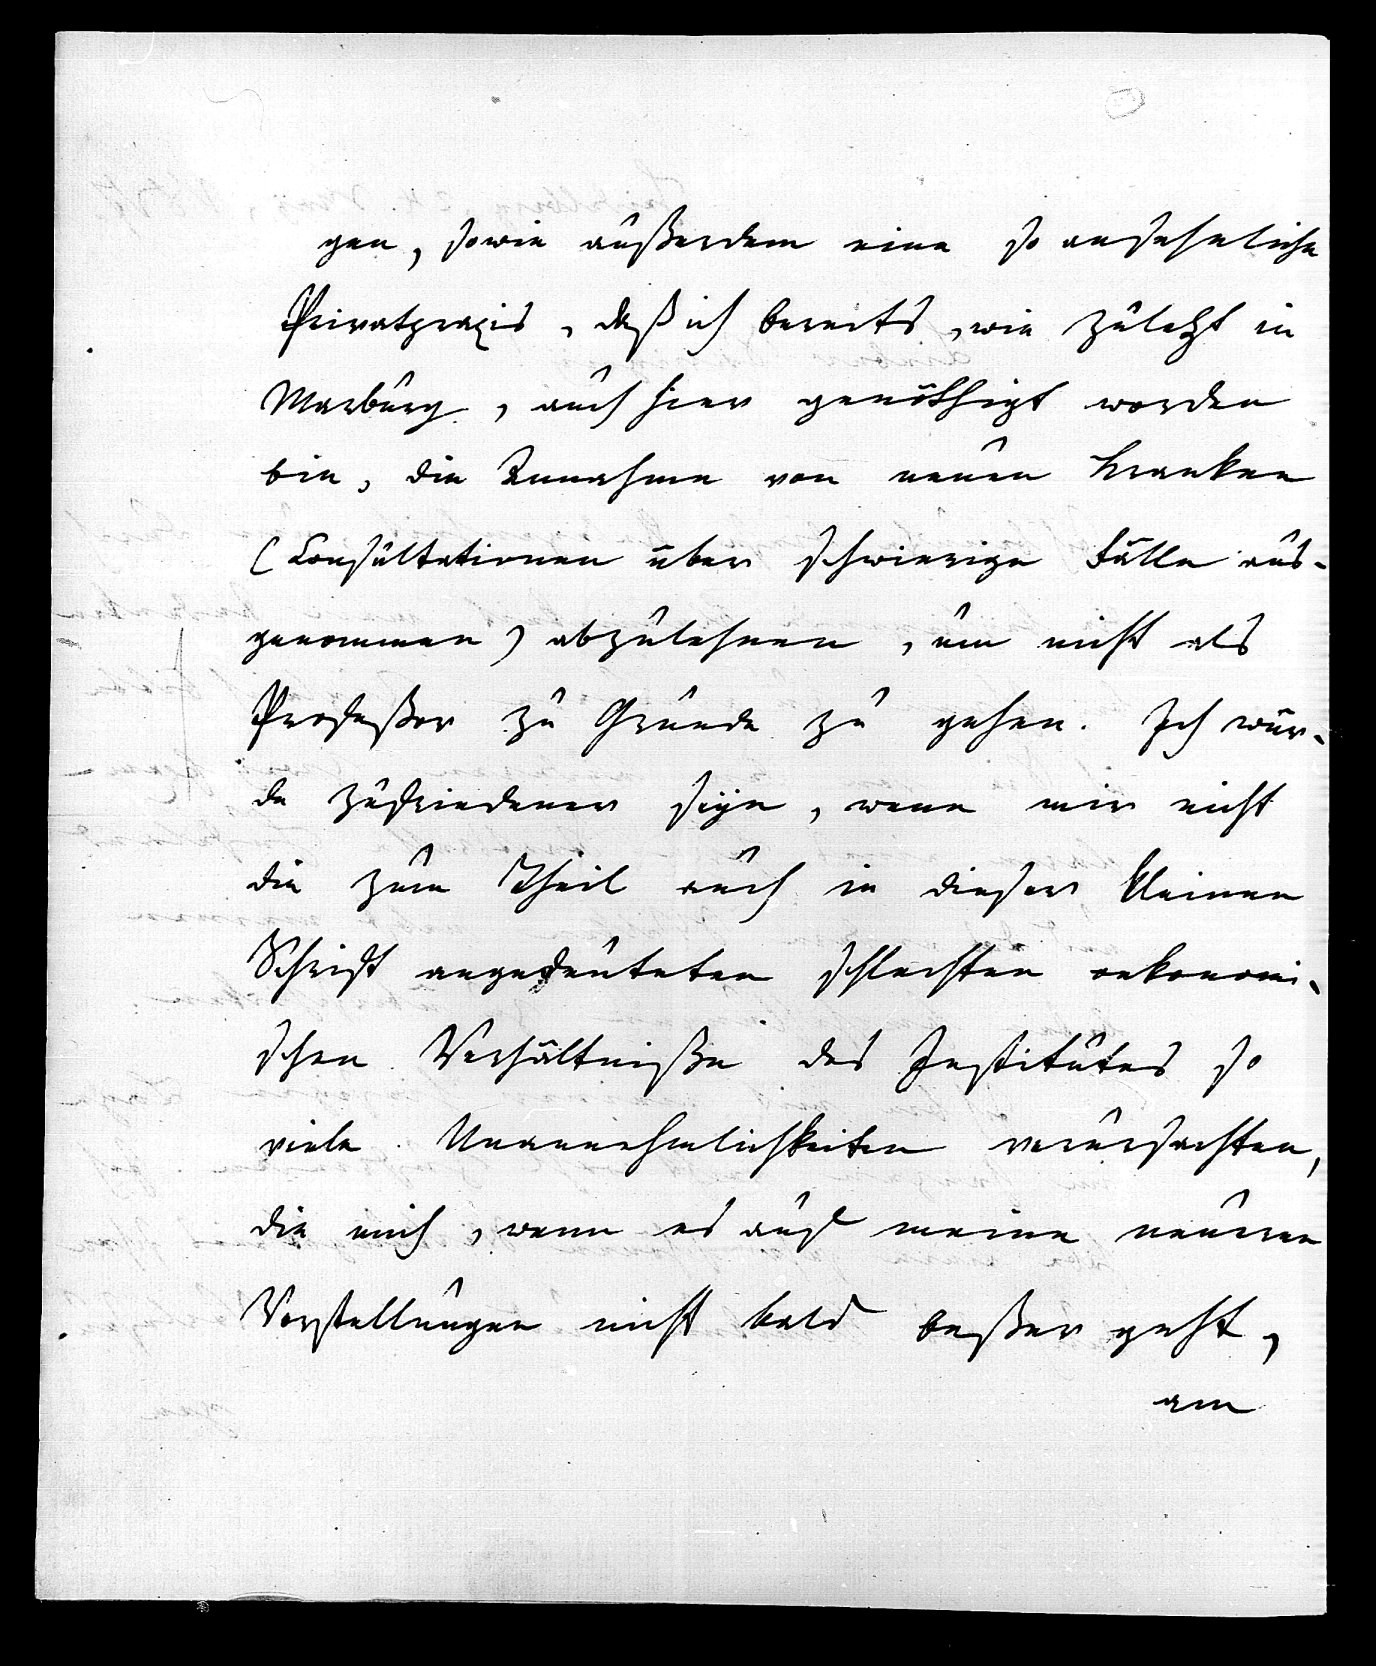 gen, sowie außerdem eine so ansehnliche
Privatpraxis, daß ich bereits, wie zuletzt in
Marburg, auch hier genöthigt worden
bin, die Annahme von neuen Kranken
(Consultationen über schwierige Fälle aus-
genommen) abzulehnen, um nicht als
Profeßor zu Grunde zu gehen. Ich wür-
de zufriedener seyn, wenn mir nicht
die zum Theil auch in dieser kleinen
Schrift angedeuteten schlechten oekonomi-
schen Verhältniße des Institutes so
viele Unannehmlichkeiten verursachten,
die mich, wenn es auf meine neueren
Vorstellungen nicht bald beßer geht,
am